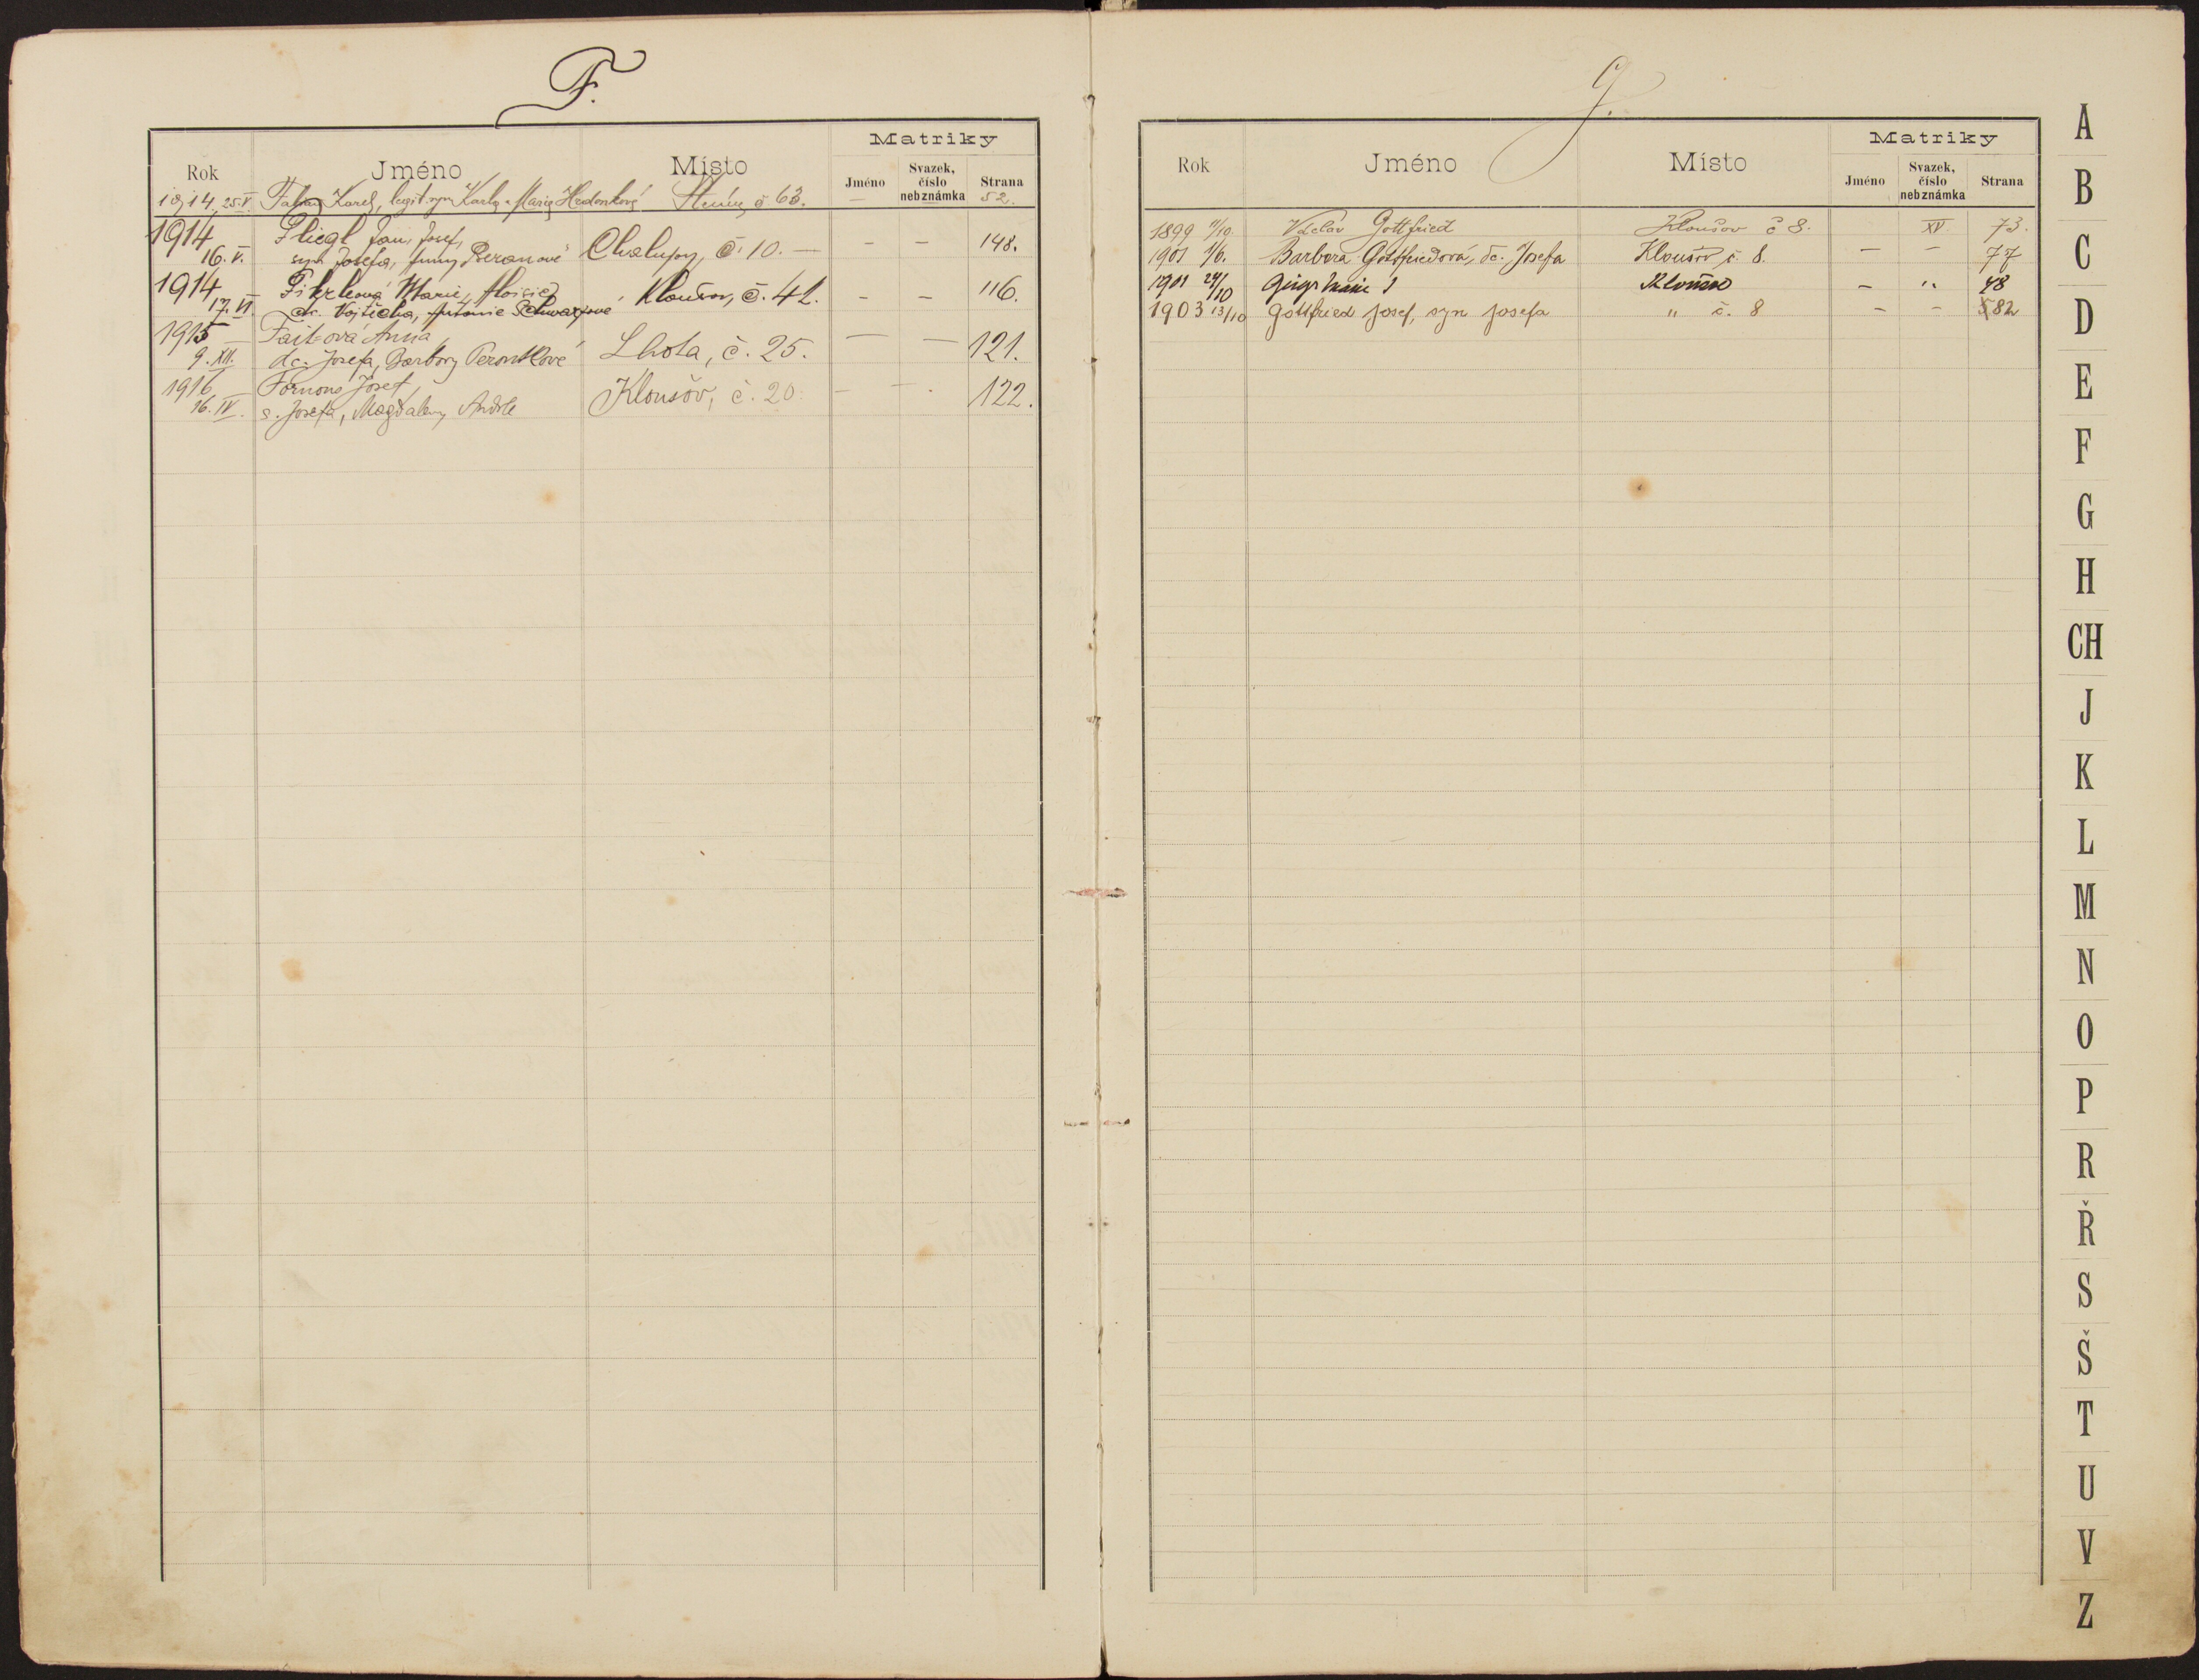 F.
Matriky
Rok Jméno Místo Jméno Svazek, číslo neb známka Strana
1914 25.V. Karel, legit. syn Karla a Marie č 63. — 52.
1914 Fliegl Jan, Josef,
16.V. syn Josefa, Anny Beranové Chalupy, č. 10. — – – 148.
1914 Marie, Aloisie,
17.VI. dc. Vojtěcha, Antonie Schwarzové Kloušov, č. 42. – – 116.
1915 — Faitová Anna,
9.XII. dc. Josefa, Barbory Lhota, č. 25. — — 121.
1916 — Josef,
16.IV. s. Josefa, Magdaleny Andrle Kloušov, č. 20. – – . 122.
G.
Matriky
Rok Jméno Místo Jméno Svazek, číslo neb známka Strana
1899 /10. Václav Gottfried Kloušov č 8. XV. 73.
1901 1/6. Barbora Gottfriedová, dc. Josefa Kloušov č. 8. — — 77
1901 24/10 Marie Kloušov – " 78
1903 13/10 Gottfried Josef, syn Josefa " č. 8 – – 82
A
B
C
D
E
F
G
H
CH
J
K
L
M
N
O
P
R
Ř
S
Š
T
U
V
Z